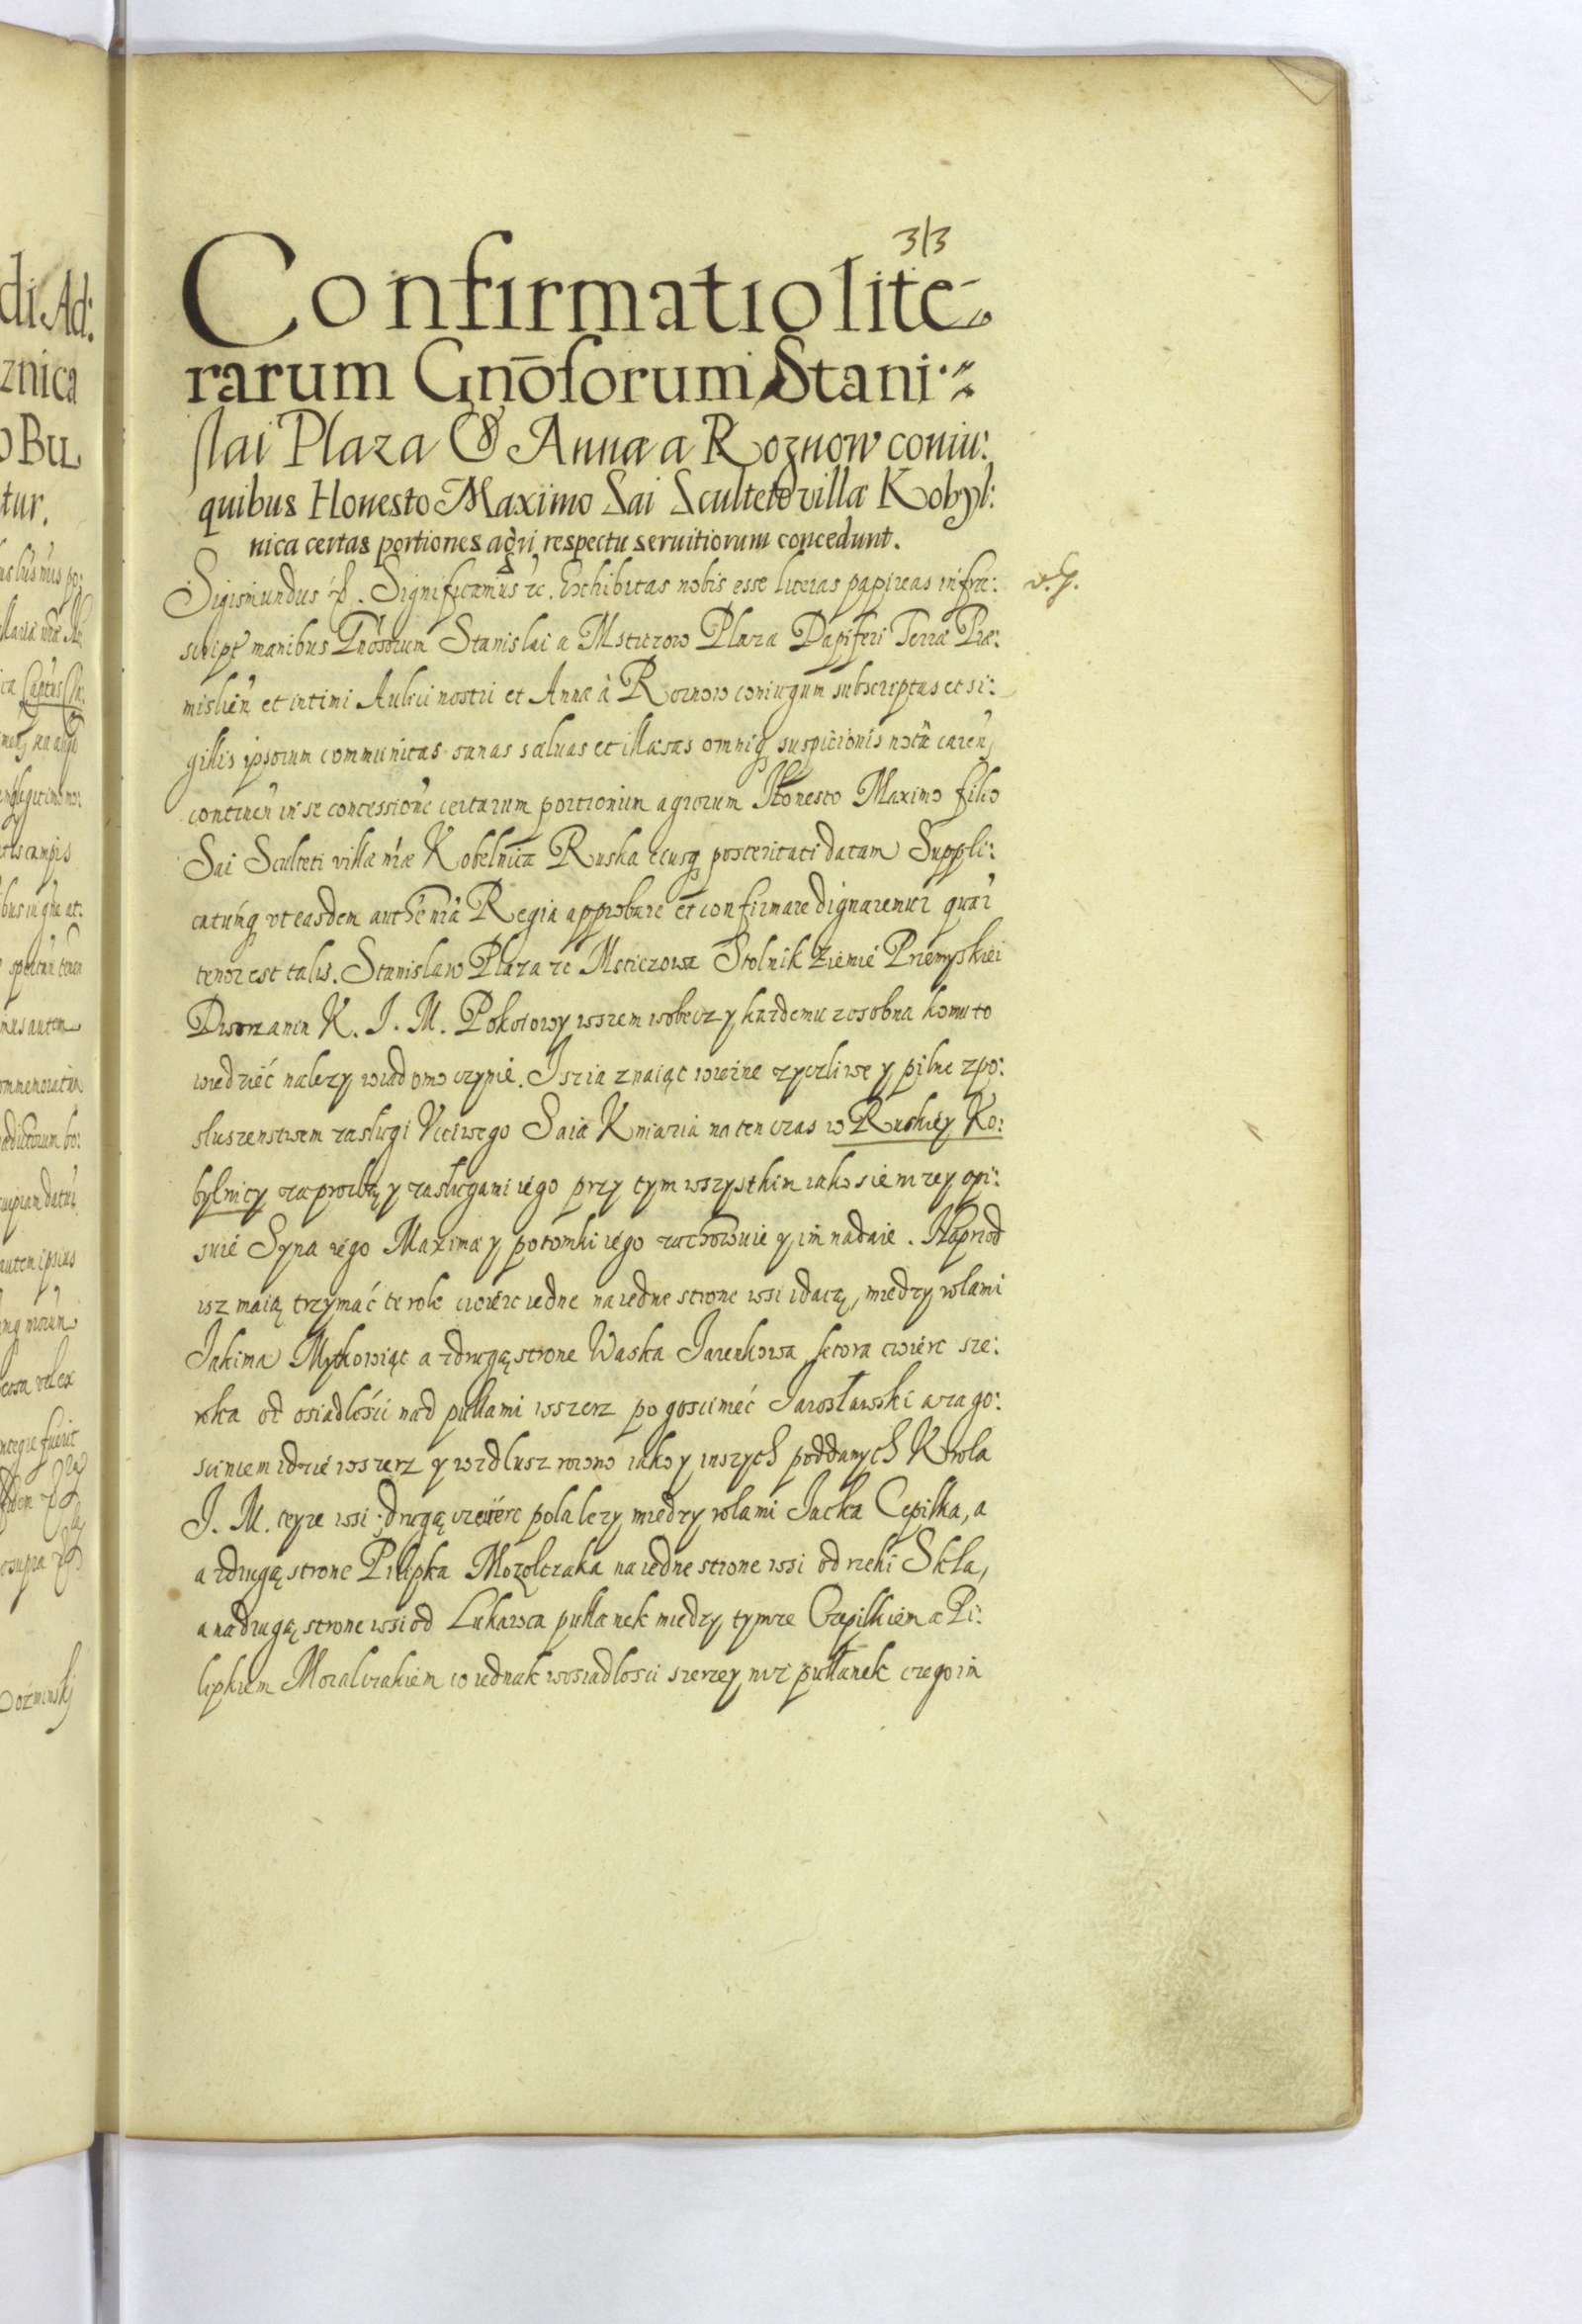 313
Confirmatio lite-
rarum Gnōsorum Stani-
slai Plaza & Annæ a Roznow coniu:
quibus Honesto Maximo Sai Sculteto villæ Kobyl:
nica certas portiones agri respectu seruitiorum concedunt.
Sigismundus Significamus etc. Exhibitas nobis esse literas papireas infra:
script manibus Gnōsorum Stanislai a Msticzow Plaza Dapiferi Terræ Præ:
mislien et intimi Aulici nostri et Annæ à Roznow coniugum subscriptas et si:
gillis ipsorum communitas sanas saluas et illæsas omniq suspicionis nota caren
continen in se concessionē certarum portionum agrorum Honesto Maximo filio
Sai Sculteti villæ nræ Kobelnica Ruska eiusq posteritati datam Suppli:
catumq vt easdem authē nrā Regia approbare et confirmare dignaremur quar
tenor est talis. Stanislaw Plaza ze Msticzowa Stolnik Ziemie Przemyskiei
Dworzanin K. J. M. Pokoiowy wszem wobecz y kazdemu zosobna komu to
wiedzieć nalezy wiadomo czynie. Isz ia znaiąc wierne zyczliwe y pilne z po:
sluszenstwem zaslugi Vcciwego Saia Kniazia na ten czas w Ruskiey Ko:
bylnicy za prozbą y zaslugami iego przy tym wszystkim iako sie nizey opi:
suie Syna iego Maxima y potomki iego zachowuie y im nadaie. Naprzod
isz maią trzymać te role cwierc iedne na iedne strone wsi idacą, miedzy rolami
Jakima Mytkowiąt a zdrugą strone Waska Jarenkowa ktora cwierc sze:
roka od osiadlości nad pullami wszerz po gosciniec Jarosławski a za go:
scincem idzie wszerz y wzdlusz rowno iako y inszych poddanych Krola
J. M. teyze wsi ; drugą czwierc pola lezy miedzy rolami Jacka Cepilka, a
a zdrugą strone Pilipka Mozolczaka na iedne strone wsi od rzeki Skla,
a na drugą strone wsi od Lukawca pullanek miedzy tymze Czepilkiem a Pi:
lipkiem Mozalczakiem w iednak wosiadlosci szerzey niz pullanek czego im